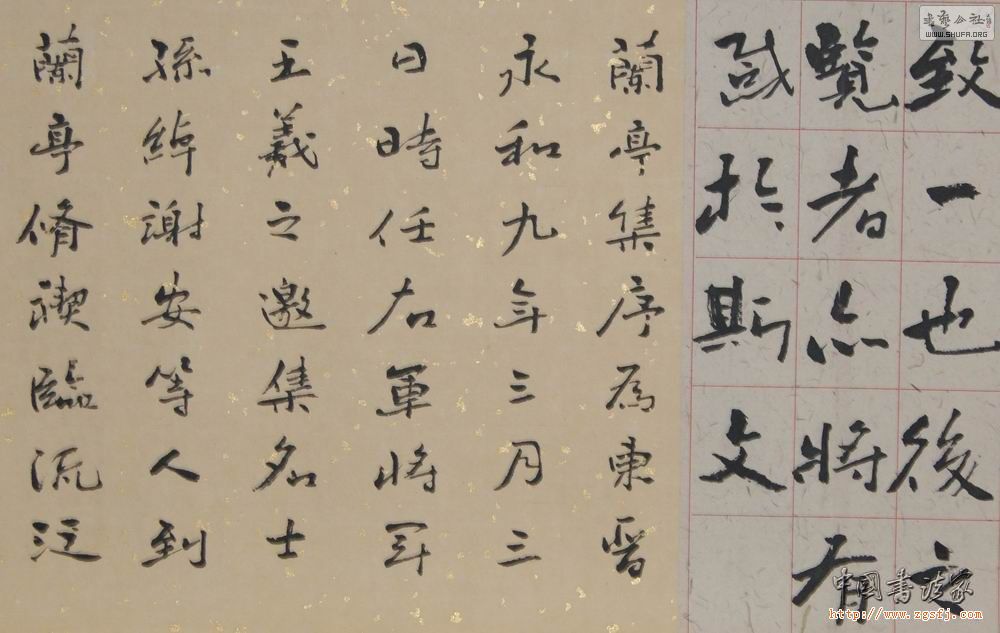 致一也後之
覽者亦將有
感於斯文
蘭亭集序為東晉
永和九年三月三
日時任右軍將軍
王羲之邀集名士
孫綽謝安等人到
蘭亭脩禊臨流泛
书艺公社
WWW.SHUFA.ORG
中國書法家
http://www.zgsfj.com